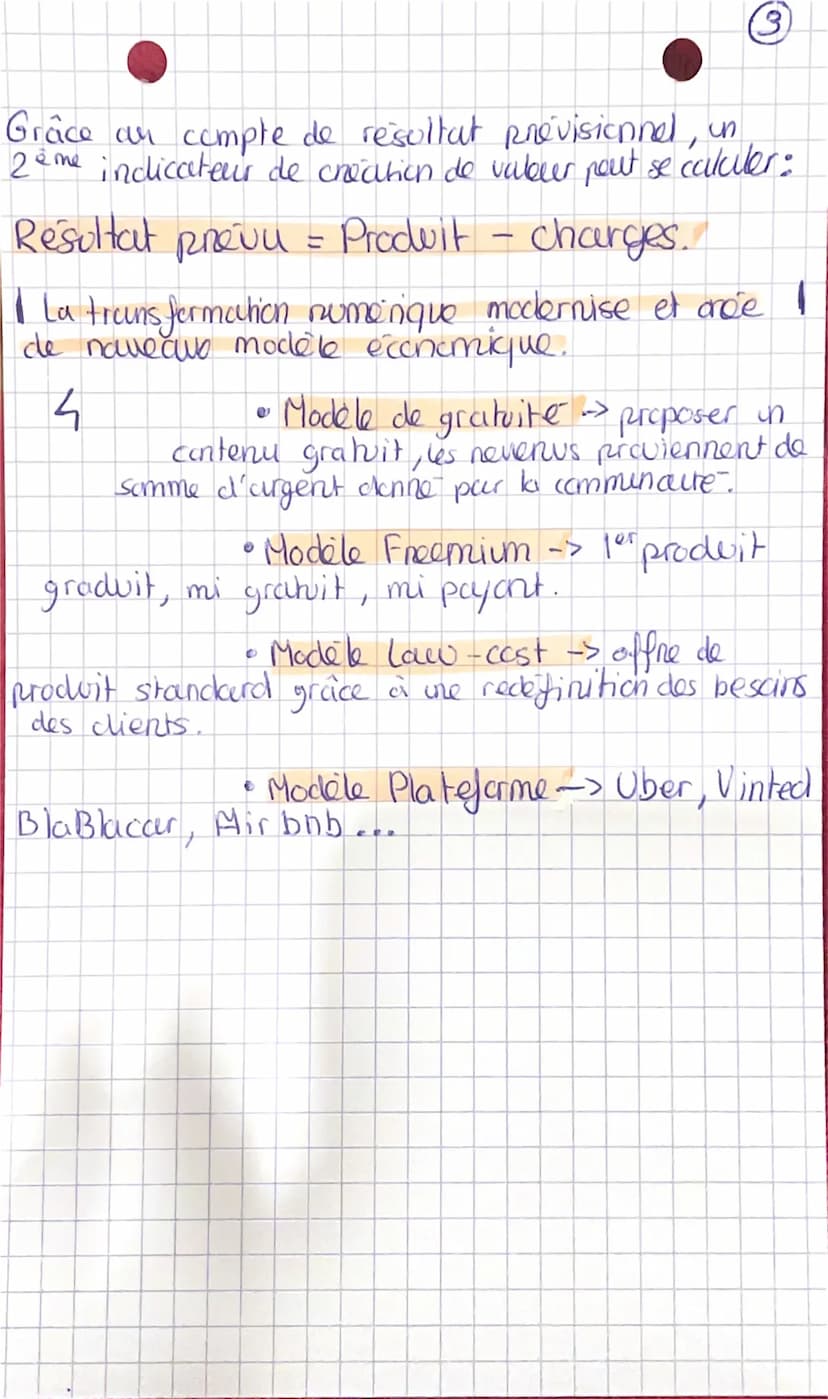 3
Grâce au compte de résultat prévisionnel, un
2ème indicateur de création de valeur peut se calculer :
Résultat prévu = Produit - charges.
La transformation numérique modernise et crée
de nouveaux modèle économique.
4
• Modèle de gratuité -> proposer un
contenu gratuit, les revenus proviennent de
somme d'argent donné par la communauté.
• Modèle Freemium -> 1er produit
graduit, mi gratuit, mi payant.
• Modèle Low-cost -> offre de
produit standard grâce à une redéfinition des besoins
des clients.
• Modèle Plateforme -> Uber, Vinted
BlaBlacar, Airbnb...